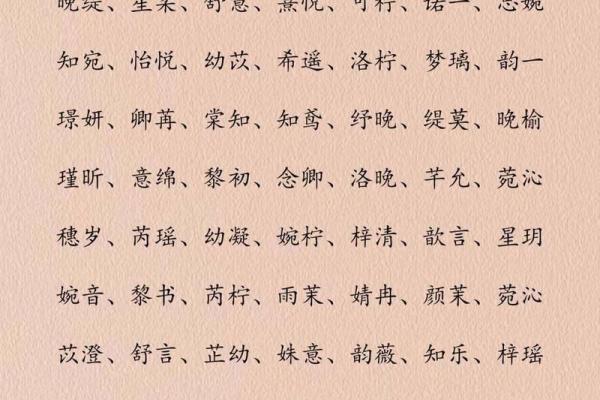 晚缇、星柒、舒意、熹悦、可柠、诺一、念婉
知宛、怡悦、幼苡、希遥、洛柠、梦璃、韵一
璟妍、卿苒、棠知、知鸢、纾晚、缇莫、晚榆
瑾昕、意绵、黎初、念卿、洛晚、芊允、菀沁
穗岁、芮瑶、幼凝、婉柠、梓清、歆言、星玥
婉音、黎书、芮柠、雨茉、婧冉、颜茉、菀沁
苡澄、舒言、芷幼、姝意、韵薇、知乐、梓瑶